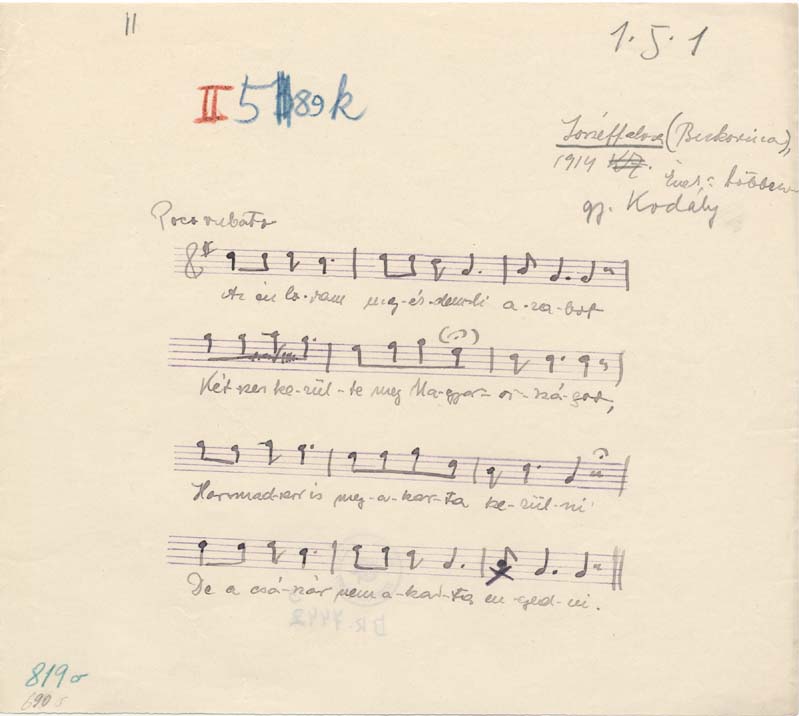 II
1.5.1
II 5 89 k
Józseffalva (Bukovina),
1914 Ének: többen
gy. Kodály
Poco rubato
Az én lo-vam meg-és-demli a-za-bot
Két-szer ke-rül-te meg Ma-gyar-or-szá-got,
Harmad-szor is meg-a-kar-ta ke-rül-ni
De a csá-szár nem a-kar-ta en-ged-ni.
819
690